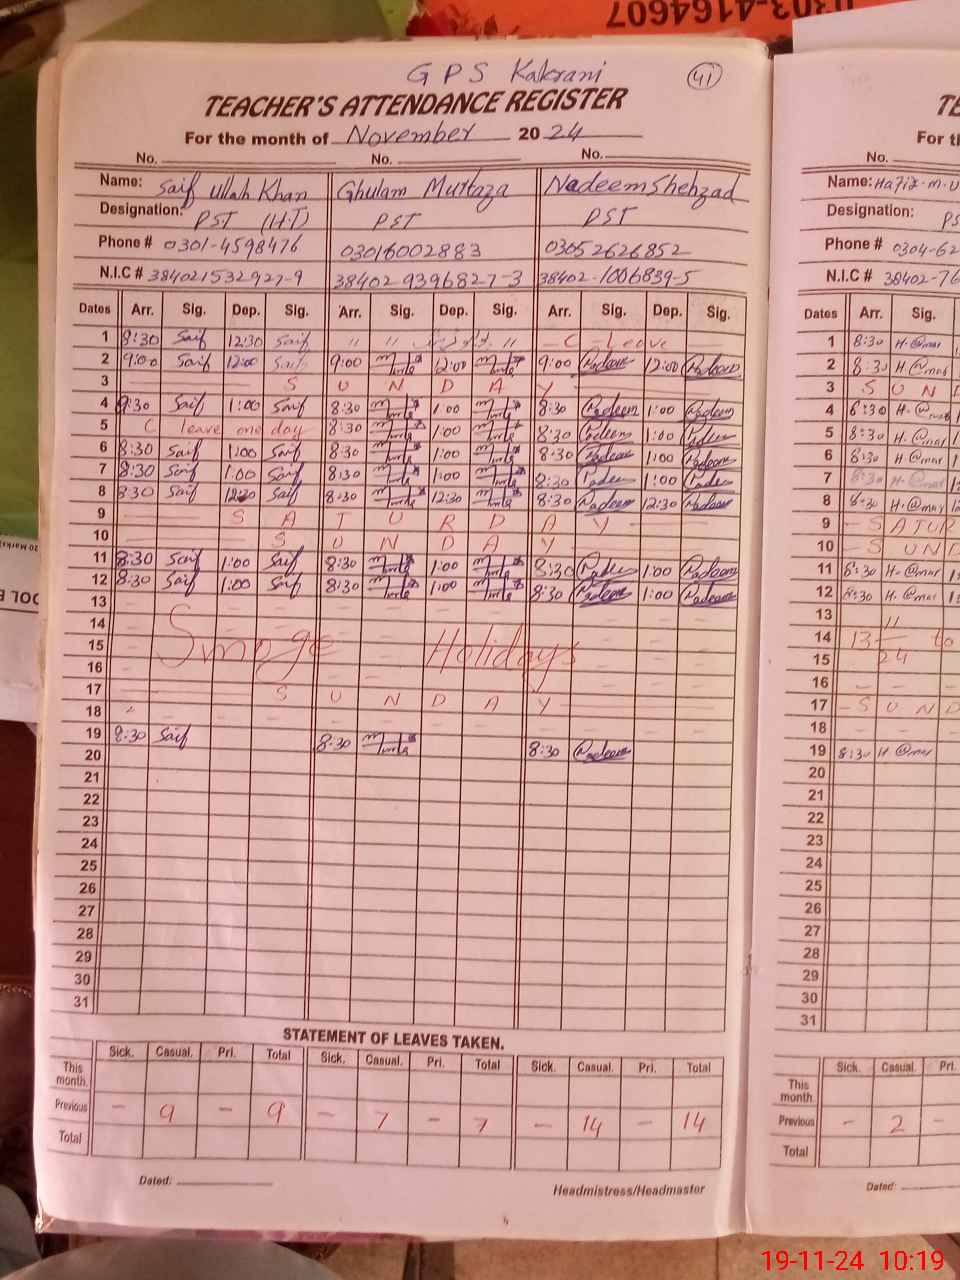 0303-4164607
GPS Kakrani
41
TEACHER'S ATTENDANCE REGISTER
For the month of November 2024
No. No. No.
Name: Saif ullah Khan Ghulam Murtaza Nadeem Shehzad
Designation: PST (H-T) PST PST
Phone # 0301-4598476 03016002883 03052626852
N.I.C # 384021532927-9 38402 9396827-3 38402-1006839-5
Dates Arr. Sig. Dep. Sig. Arr. Sig. Dep. Sig. Arr. Sig. Dep. Sig.
1 8:30 Saif 12:30 Saif " " " - C - Leave
2 9:00 Saif 12:00 Saif 9:00 12:00 9:00 Nadeem 12:00 Nadeem
3 S U N D A Y
4 8:30 Saif 1:00 Saif 8:30 1:00 8:30 Nadeem 1:00 Nadeem
5 C leave one day 8:30 1:00 8:30 Nadeem 1:00 Nadeem
6 8:30 Saif 1:00 Saif 8:30 1:00 8:30 Nadeem 1:00 Nadeem
7 8:30 Saif 1:00 Saif 8:30 1:00 8:30 Nadeem 1:00 Nadeem
8 8:30 Saif 12:30 Saif 8:30 12:30 8:30 Nadeem 12:30 Nadeem
9 S A T U R D A Y
10 S U N D A Y
11 8:30 Saif 1:00 Saif 8:30 1:00 8:30 Nadeem 1:00 Nadeem
12 8:30 Saif 1:00 Saif 8:30 1:00 8:30 Nadeem 1:00 Nadeem
13
14
15 Smoge Holidays
16
17 S U N D A Y
18
19 8:30 Saif 8:30 8:30 Nadeem
20
21
22
23
24
25
26
27
28
29
30
31
STATEMENT OF LEAVES TAKEN.
Sick. Casual. Pri. Total Sick. Casual. Pri. Total Sick. Casual. Pri. Total
This month.
Previous - 9 - 9 - 7 - 7 - 14 - 14
Total
Dated:
Headmistress/Headmaster
TE
For th
No.
Name: Hafiz-M-U
Designation: PS
Phone # 0304-62
N.I.C # 38402-76
Dates Arr. Sig.
1 8:30
2 8:30
3 S U N D
4 8:30
5 8:30
6 8:30
7 8:30
8 8:30
9 - S A T U R
10 - S U N D
11 8:30
12 8:30
13
14 13 11 to
15 24
16
17 - S U N D
18
19 8:30
20
21
22
23
24
25
26
27
28
29
30
31
Sick. Casual. Pri.
This month
Previous - 2 -
Total
Dated:
19-11-24 10:19